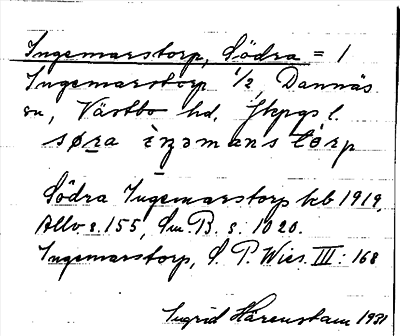 Ingemarstorp, Södra = 1
Ingemarstorp 1/2, Dannäs
sn, Västbo hd, Jkpgs l.
søra ìŋəmans tórp
Södra Ingemarstorp hcb 1919,
Allv s. 155, Sm B. s. 1020.
Ingemarstorp, S. P. Wies. III: 168
Ingrid Härenstam 1931